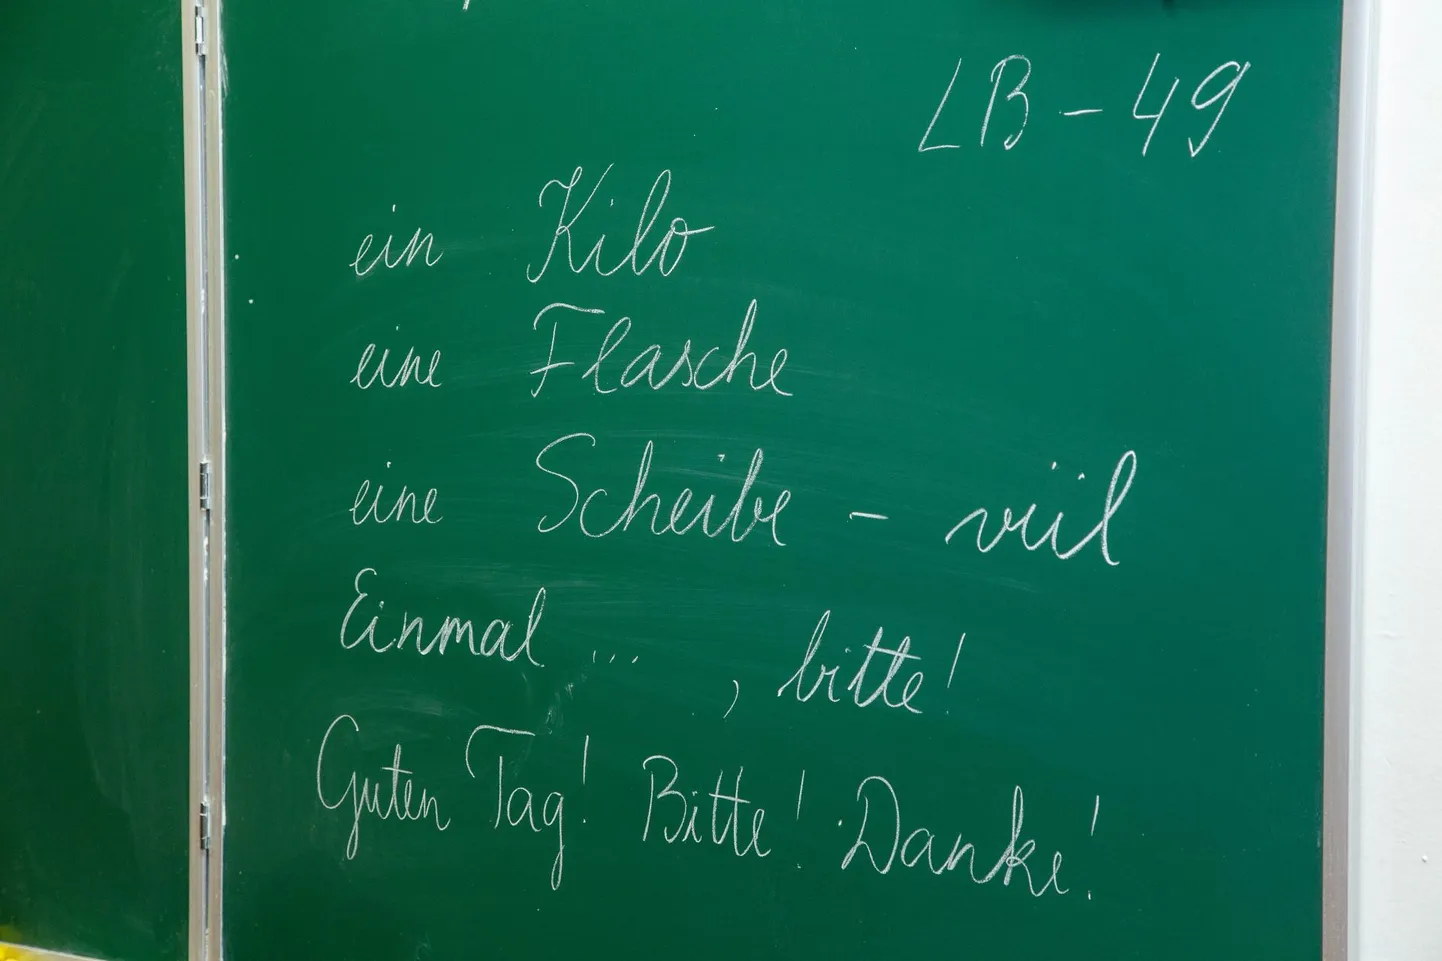 LB - 49
ein Kilo
eine Flasche
eine Scheibe - viil
Einmal ... , bitte!
Guten Tag! Bitte! Danke!